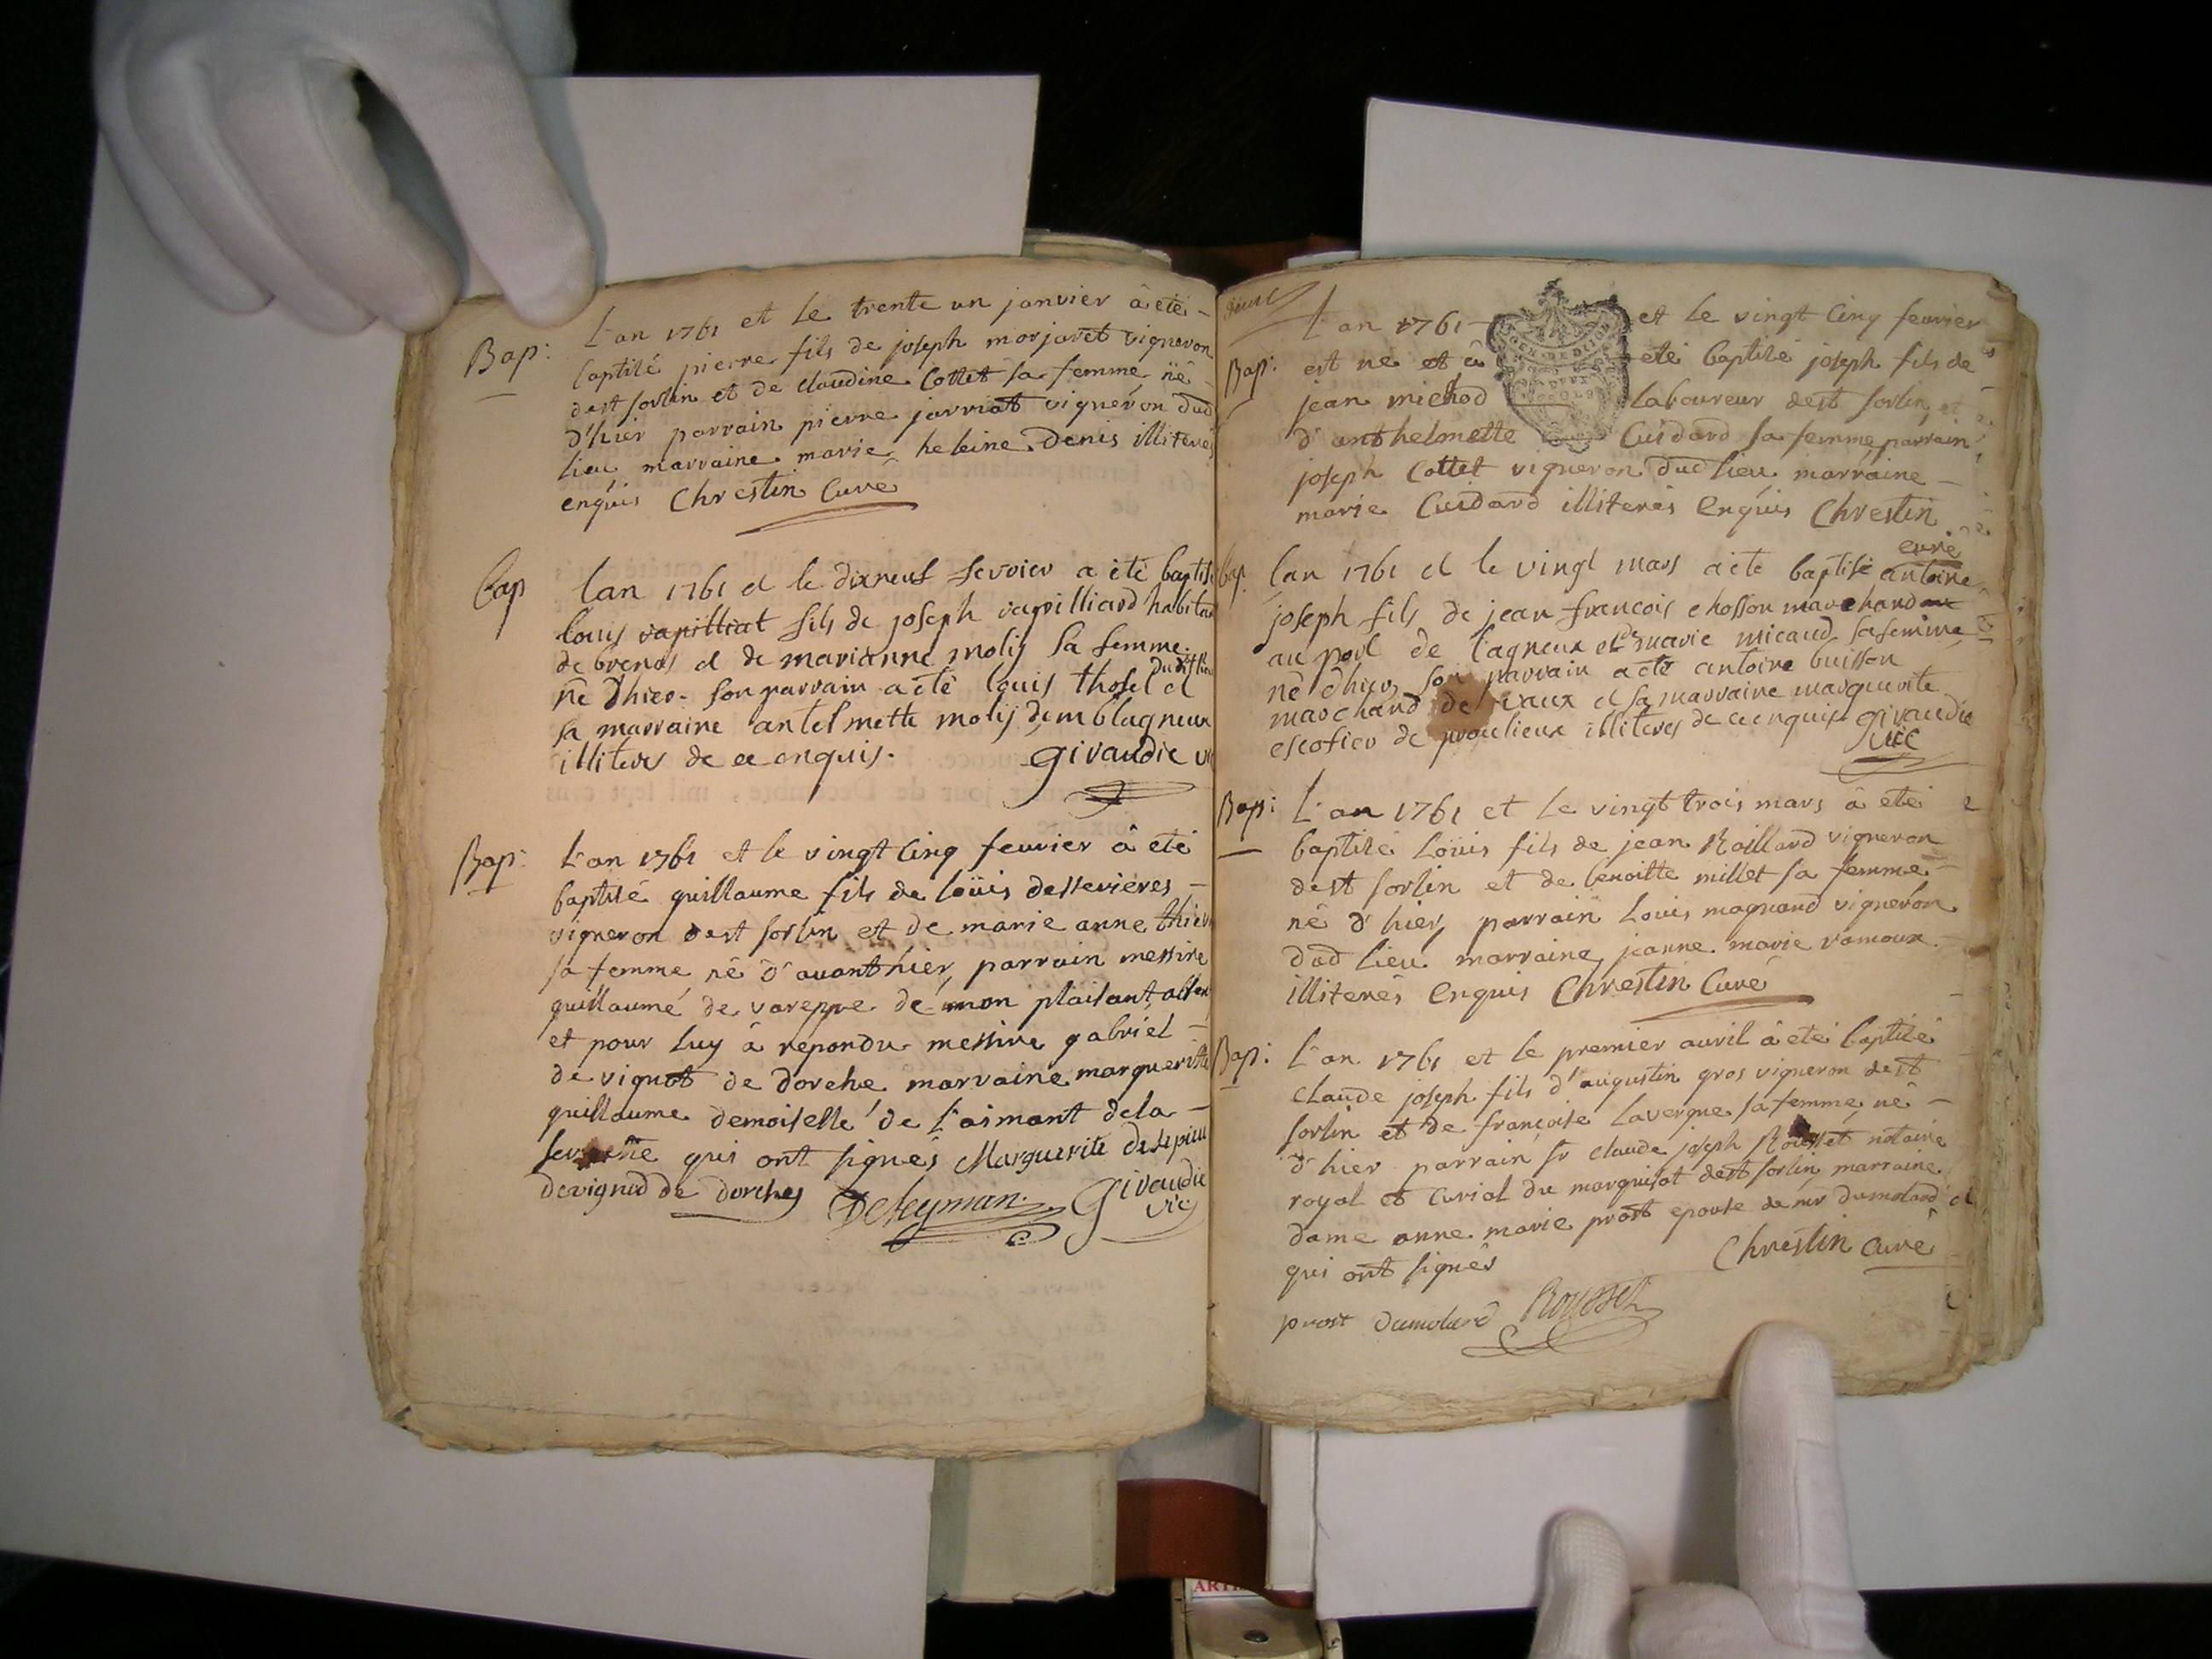 Bap: L'an 1761 et le trente un janvier â eté
baptisé pierre fils de joseph morjaret vigneron
de st sorlin et de claudine Cottet sa femme né
d'hier parrain pierre jarriat vigneron dud
lieu marraine marie heleine Denis illiterés
enquis Chrestin Curé
Bap lan 1761 et le dixneuf fevrier a été baptisé
louis vapilliat fils de joseph vapilliard habitan
de brenas et de marianne moly sa femme.
né dhier. son parrain a été louis thosel et
sa marraine antelmette moly demblagneux
illiteres de ce enquis. Givaudie vic
Bap: L'an 1761 et le vingt cinq feurier â eté
baptisé guillaume fils de loüis desserieres
vigneron de st sorlin et de marie anne
sa femme né d'auanthier, parrain messire
guillaume de vareppe de mon plaisant
et pour luy â repondu messire gabriel
de vignot de dorche marraine margueritte
guillaume demoiselle de l'aimant dela
qui ont signés Marguerite
devignod de dorches Deleyman Givaudie
vic
L'an 1761 et le vingt cinq feurier
Bap: est né et â eté baptisé joseph fils de
jean michod laboureur de st sorlin et
d'anthelmette Cuidard sa femme, parrain
joseph Cottet vigneron dud lieu marraine
marie Cuidard illiterés Enquis Chrestin
curé
bap lan 1761 et le vingt mars a été baptisé antoine
joseph fils de jean francois chosson marchand
au port de lagneux et de marie micaud sa femme
né dhier son parrain a été antoine buisson
marchand de vaux et sa marraine marguerite
escofier de proulieux illiteres de ce enquis Givaudie
vic
Bap: L'an 1761 et le vingt trois mars â eté
baptisé Loüis fils de jean Roillard vigneron
de st sorlin et de benoitte millet sa femme
né d'hier, parrain Louis magnand vigneron
dud lieu marraine jeanne marie ramoux
illiterés Enquis Chrestin Curé
Bap: L'an 1761 et le premier auril â eté baptisé
claude joseph fils d'augustin gros vigneron de st
sorlin et de françoise Lavergne sa femme né
d'hier parrain sr claude joseph Rousset notaire
royal et curial du marquisat de st sorlin marraine
dame anne marie prost epouse de mr dumolard
qui ont signés Chrestin Curé
prost dumolard Rousset